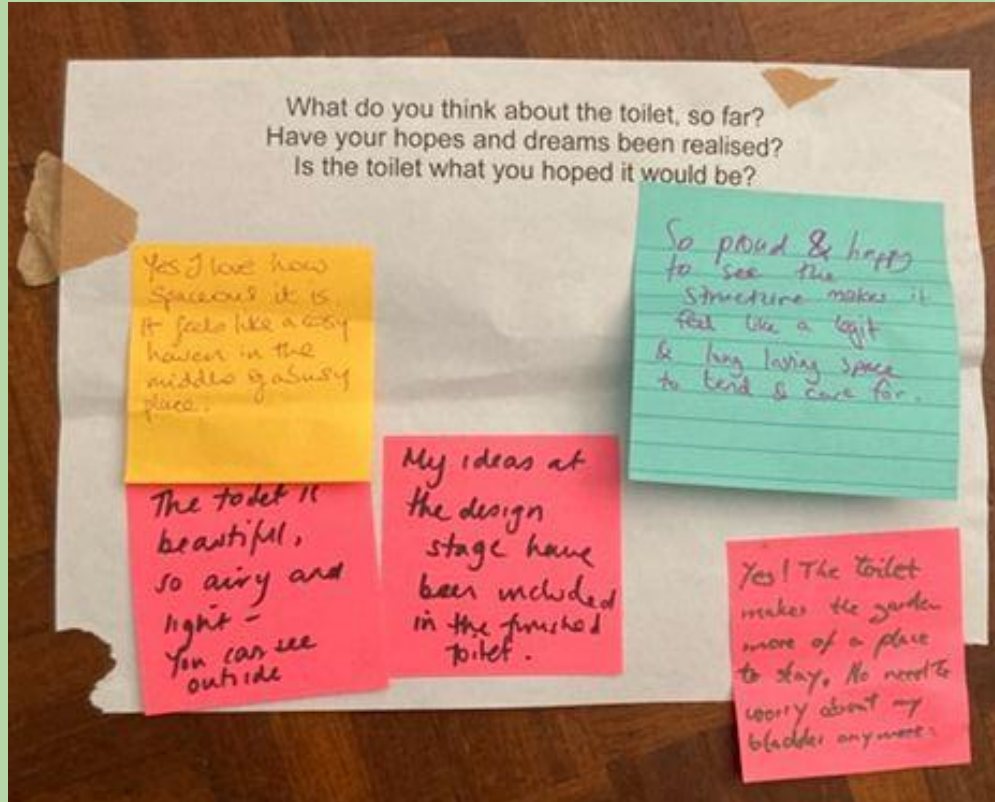 What do you think about the toilet, so far?
Have your hopes and dreams been realised?
Is the toilet what you hoped it would be?
Yes I love how
spacious it is.
It feels like a cosy
haven in the
middle of a busy
place.
So proud & happy
to see the
structure makes it
feel like a legit
& long lasting space
to tend & care for.
The toilet is
beautiful,
so airy and
light -
You can see
outside
My ideas at
the design
stage have
been included
in the finished
toilet.
Yes! The toilet
makes the garden
more of a place
to stay. No need to
worry about my
bladder anymore.